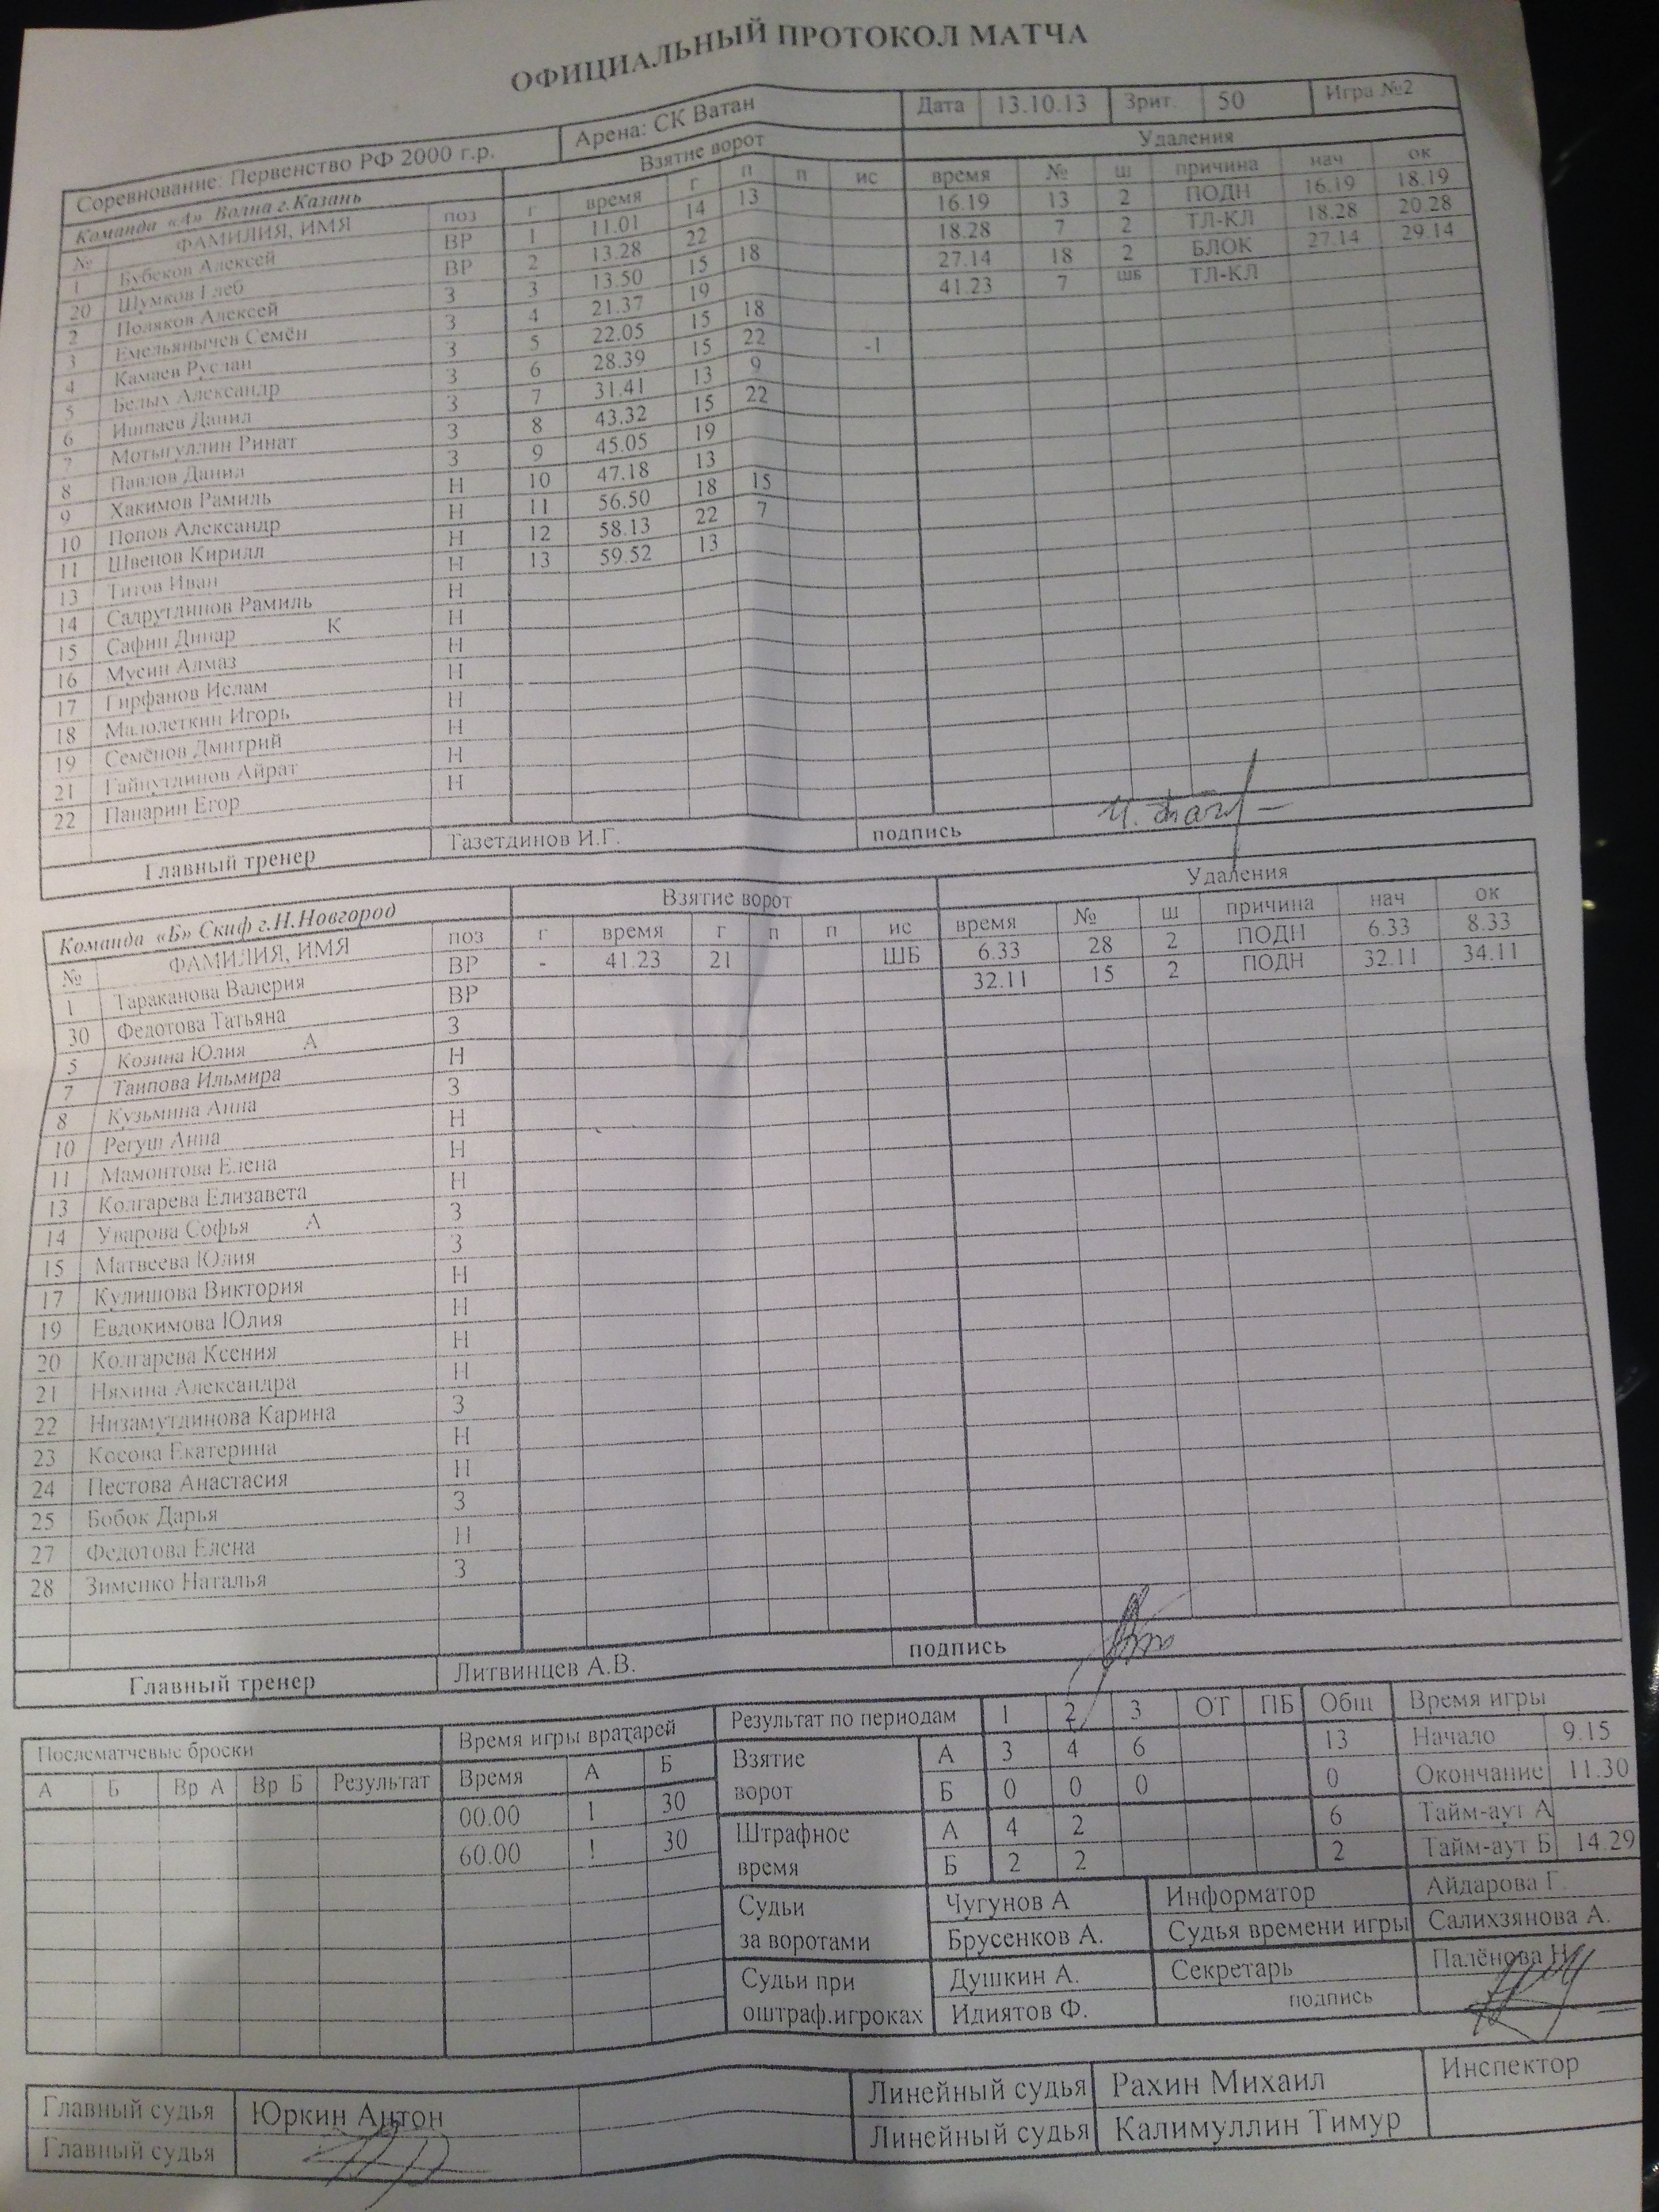 ОФИЦИАЛЬНЫЙ ПРОТОКОЛ МАТЧА
Соревнование: Первенство РФ 2000 г.р. Арена: СК Ватан Дата 13.10.13 Зрит. 50 Игра №2
Команда «А» Волна г.Казань Взятие ворот Удаления
№ ФАМИЛИЯ, ИМЯ поз г время г п п ис время № ш причина нач ок
1 Бубеков Алексей ВР 1 11.01 14 13 16.19 13 2 ПОДН 16.19 18.19
20 Шумков Глеб ВР 2 13.28 22 18.28 7 2 ТЛ-КЛ 18.28 20.28
2 Поляков Алексей З 3 13.50 15 18 27.14 18 2 БЛОК 27.14 29.14
3 Емельянычев Семён З 4 21.37 19 41.23 7 ШБ ТЛ-КЛ
4 Камаев Руслан З 5 22.05 15 18
5 Белых Александр З 6 28.39 15 22 -1
6 Ишпаев Данил З 7 31.41 13 9
7 Мотыгуллин Ринат З 8 43.32 15 22
8 Павлов Данил З 9 45.05 19
9 Хакимов Рамиль Н 10 47.18 13
10 Попов Александр Н 11 56.50 18 15
11 Швецов Кирилл Н 12 58.13 22 7
13 Титов Иван Н 13 59.52 13
14 Садрутдинов Рамиль Н
15 Сафин Динар К Н
16 Мусин Алмаз Н
17 Гирфанов Ислам Н
18 Малолеткин Игорь Н
19 Семёнов Дмитрий Н
21 Гайнутдинов Айрат Н
22 Панарин Егор Н
Главный тренер Тазетдинов И.Г. подпись
Команда «Б» Скиф г.Н.Новгород Взятие ворот Удаления
№ ФАМИЛИЯ, ИМЯ поз г время г п п ис время № ш причина нач ок
1 Тараканова Валерия ВР - 41.23 21 ШБ 6.33 28 2 ПОДН 6.33 8.33
30 Федотова Татьяна ВР 32.11 15 2 ПОДН 32.11 34.11
5 Козина Юлия А З
7 Таипова Ильмира Н
8 Кузьмина Анна З
10 Регуш Анна Н
11 Мамонтова Елена Н
13 Колгарева Елизавета Н
14 Уварова Софья А З
15 Матвеева Юлия З
17 Кулишова Виктория Н
19 Евдокимова Юлия Н
20 Колгарева Ксения Н
21 Няхина Александра Н
22 Низамутдинова Карина З
23 Косова Екатерина Н
24 Пестова Анастасия Н
25 Бобок Дарья З
27 Федотова Елена Н
28 Зименко Наталья З
Главный тренер Литвинцев А.В. подпись
Послематчевые броски Время игры вратарей Результат по периодам 1 2 3 ОТ ПБ Общ Время игры
А Б Вр А Вр Б Результат Время А Б Взятие ворот А 3 4 6 13 Начало 9.15
00.00 1 30 Б 0 0 0 0 Окончание 11.30
60.00 ! 30 Штрафное время А 4 2 6 Тайм-аут А
Б 2 2 2 Тайм-аут Б 14.29
Судьи за воротами Чугунов А Информатор Айдарова Г.
Брусенков А. Судья времени игры Салихзянова А.
Судьи при оштраф.игроках Душкин А. Секретарь Палёнова Н
Идиятов Ф. подпись
Главный судья Юркин Антон Линейный судья Рахин Михаил Инспектор
Главный судья Линейный судья Калимуллин Тимур